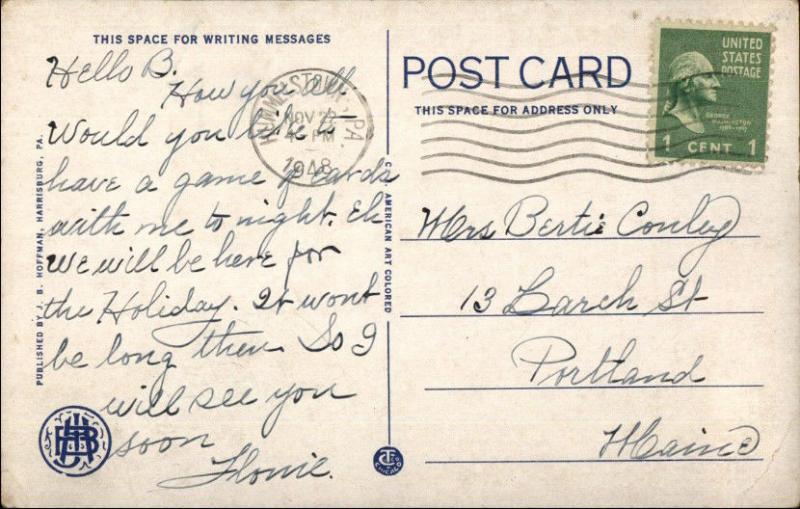 THIS SPACE FOR WRITING MESSAGES
Hello B.
How you all
Would you like to
have a game of cards
with me to night. Eh
we will be here for
the Holiday. It wont
be long then So I
will see you
soon
Flonie.
PUBLISHED BY J. B. HOFFMAN, HARRISBURG, PA.
AMERICAN ART COLORED
CHICAGO
POST CARD
THIS SPACE FOR ADDRESS ONLY
HUMMELSTOWN, PA.
NOV 22
PM
1948
UNITED
STATES
POSTAGE
GEORGE
WASHINGTON
1 CENT 1
Mrs Bertie Conley
13 Larch St
Portland
Maine